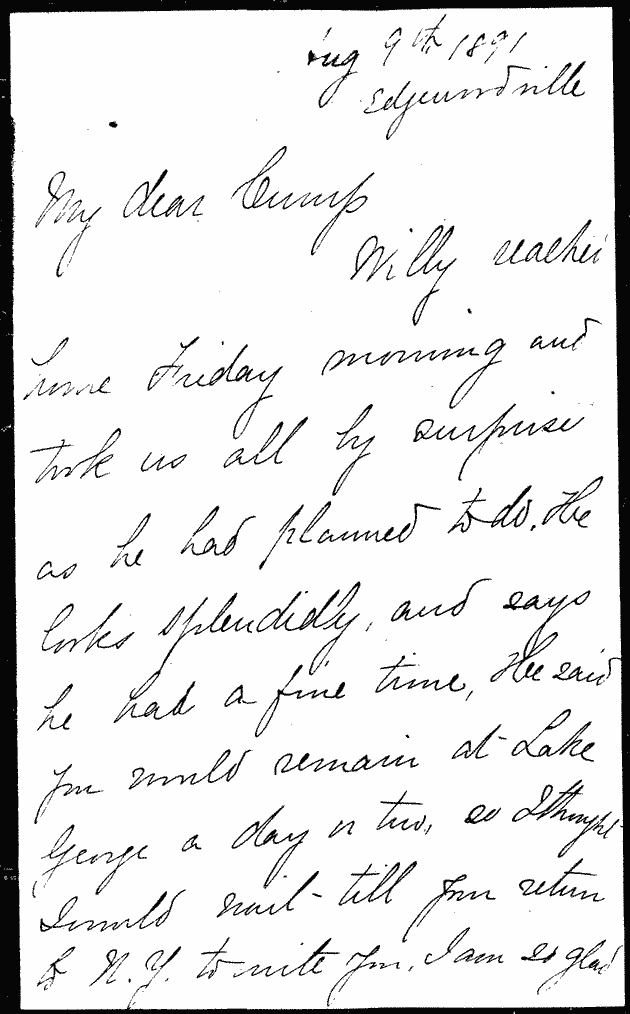 Aug 9th 1891
Edgewoodville
My dear Cump
Willy reached
home Friday morning and
took us all by surprise
as he had planned to do. He
looks splendidly, and says
he had a fine time, He said
you would remain at Lake
George a day or two, so I thought
I would wait till your return
to N.Y. to write you. I am so glad